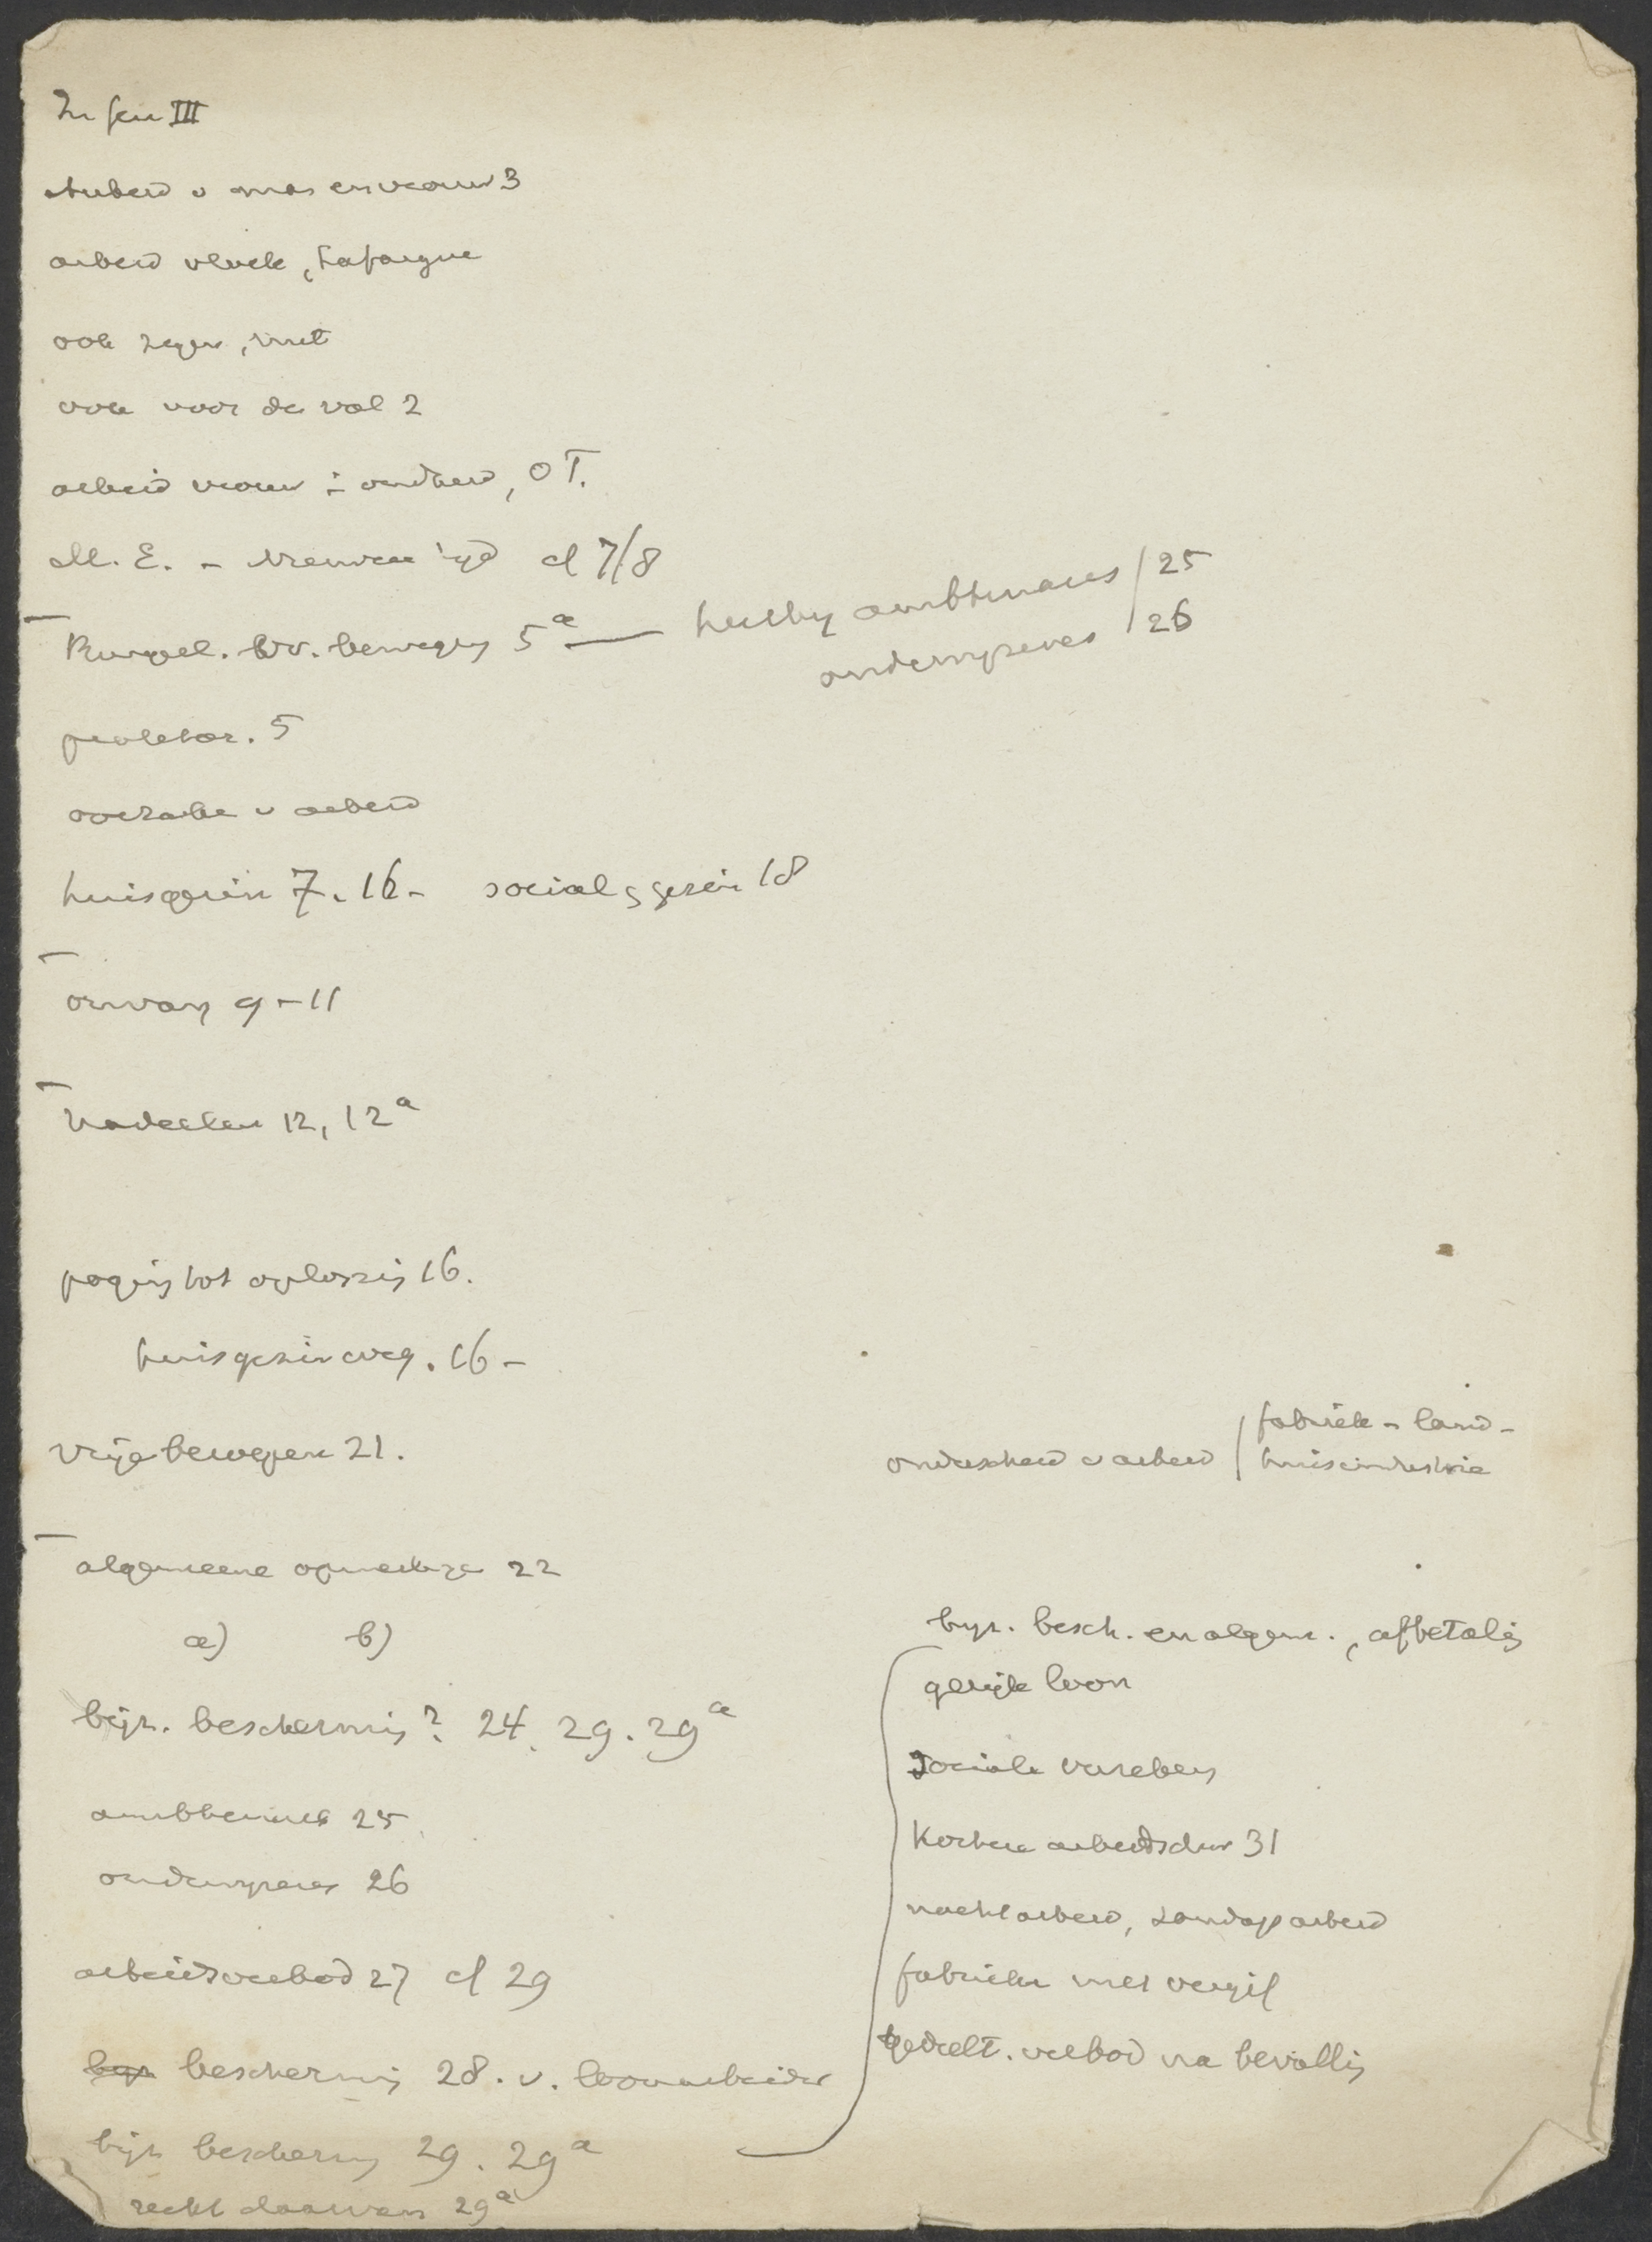 III
arbeid v man en vrouw 3
arbeid vloek, Lafargue
ook zegen, niet
ook voor de val 2
arbeid vrouw in oudheid, O T.
M. E. - Nieuwen tijd cf 7/8
Burgel. vr. beweging 5a — hierbij ambtenares / 25
onderwijzeres / 26
proletar. 5
oorzake v arbeid
huisgezin 7. 16 - social. gezin 18
omvang 9-11
Nadeelen 12, 12a
poging tot oplossing 16.
huisgezin weg. 16 -
Vrije beweging 21.
onderscheid v arbeid / fabriek - land -
huisindustrie
algemeene opmerkingen 22
a) b)
bijz. bescherming? 24. 29. 29a
ambtenares 25
onderwijzeres 26
arbeidsverbod 27 cf 29
bescherming 28. v. loonarbeider
bijz bescherming 29. 29a
recht daarvan 29a
bijz. besch. en algem., afbetaling
gelijk loon
Sociale verzeker
Kortere arbeidsduur 31
nachtarbeid, zondagsarbeid
fabrieken met vergif
gedeelt. verbod na bevalling